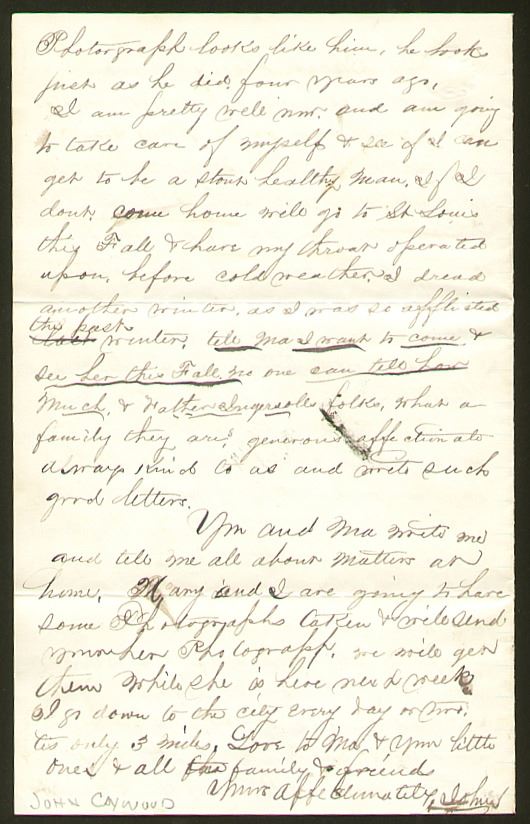 Photorgraph looks like him, he looks
just as he did four years ago,
I am pretty well now. and am going
to take care of myself & see if I can
get to be a stout healthy man, If I
dont come home will go to St Louis
this Fall & have my throat operated
upon, before cold weather. I dread
another winter, as I was so afflisted
the past
winter, tell Ma I want to come &
see her this Fall, no one can tell how
Much, & Father Ingersolls folks, what a
family they are, generous affectionate
always kind to us and write such
good letters.
You and Ma write me
and tell me all about matters at
home. Mary and I are going to have
some Photographs taken & will send
you her Photograph, we will get
them while she is here next week
I go down to the city every day or two.
tis only 3 miles, Love to Ma & your little
ones & all the family & friends
Yours Affectionately, John
JOHN CAYWOOD